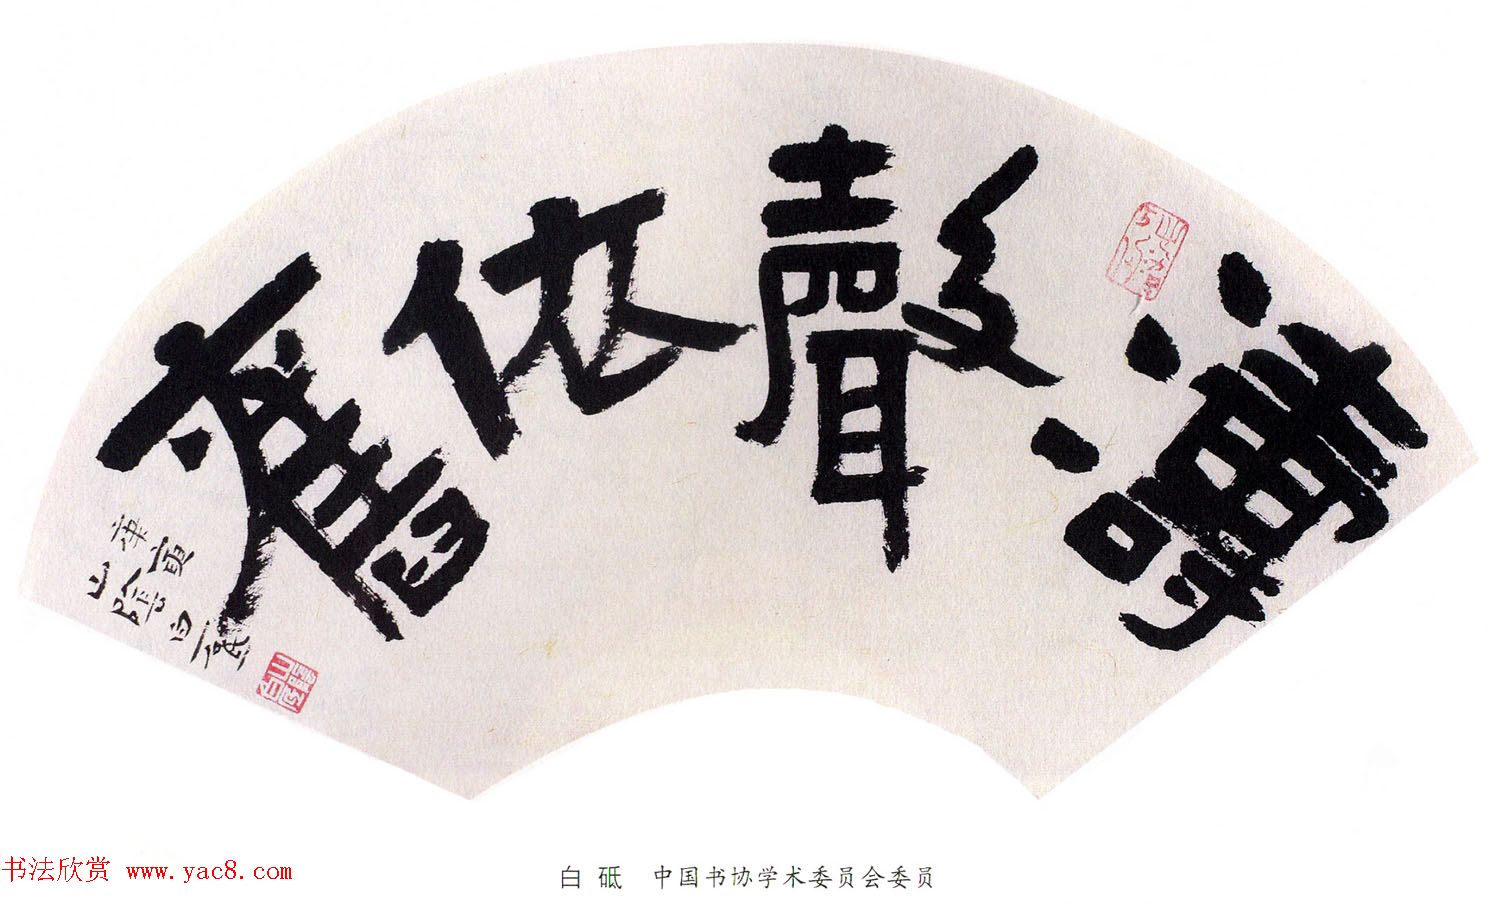 濤聲依舊
庚寅
山陰白砥
白砥 中国书协学术委员会委员
书法欣赏 www.yac8.com